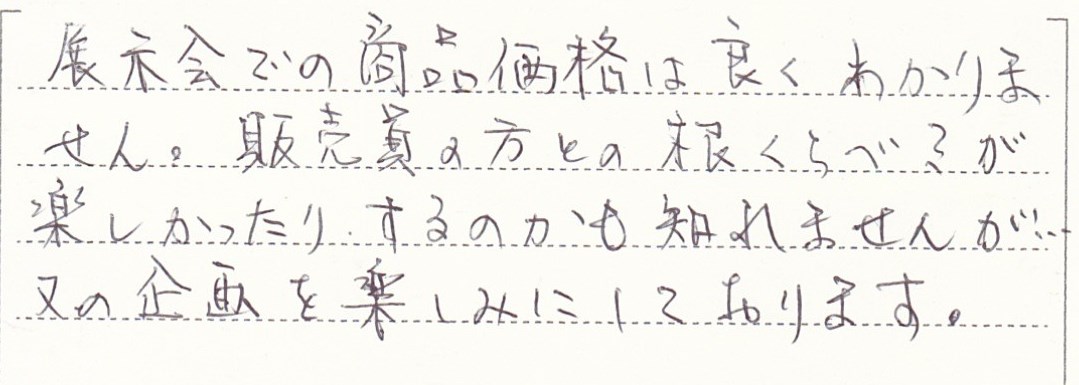 展示会での商品価格は良くわかりま
せん。販売員の方との根くらべ?が
楽しかったりするのかも知れませんが…
又の企画を楽しみにしております。